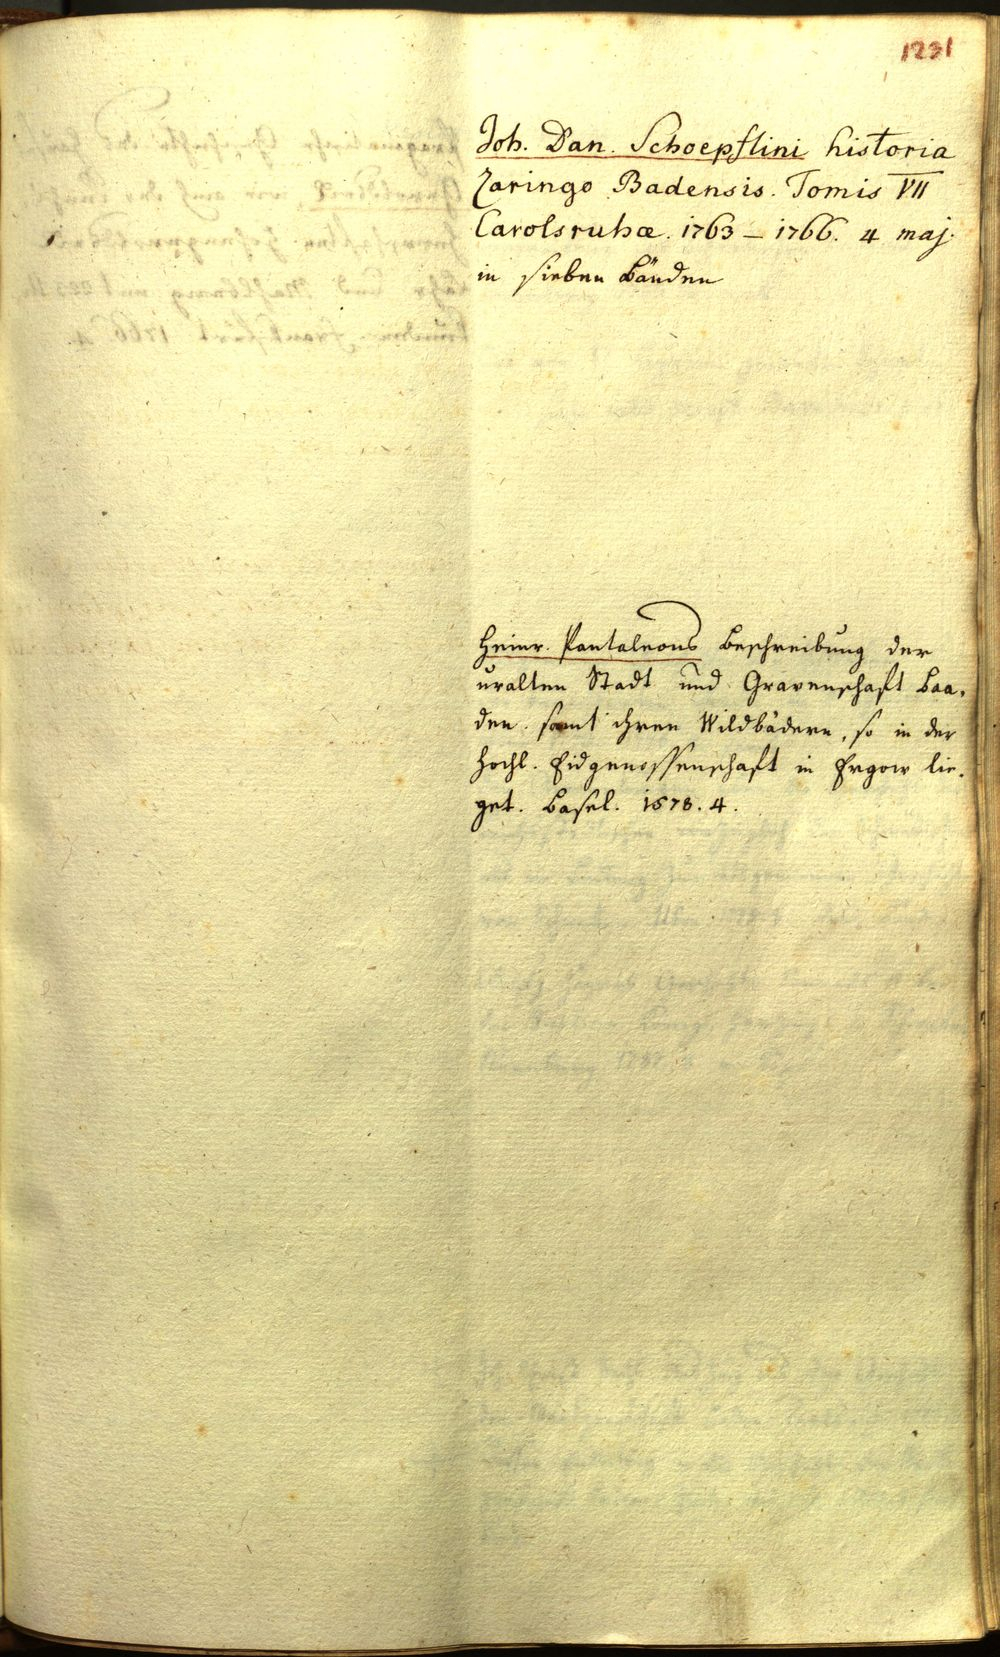 1291
Joh. Dan. Schoepflini historia
Zaringo Badensis. Tomis VII
Carolsruhæ. 1763 – 1766. 4 maj.
in sieben Bänden
Heinr. Pantaleons Beschreibung der
uralten Stadt und Gravenschaft Baa-
den. samt ihren Wildbädern, so in der
Hochl. Eidgenossenschaft in Ergow lie-
get. Basel. 1578. 4.